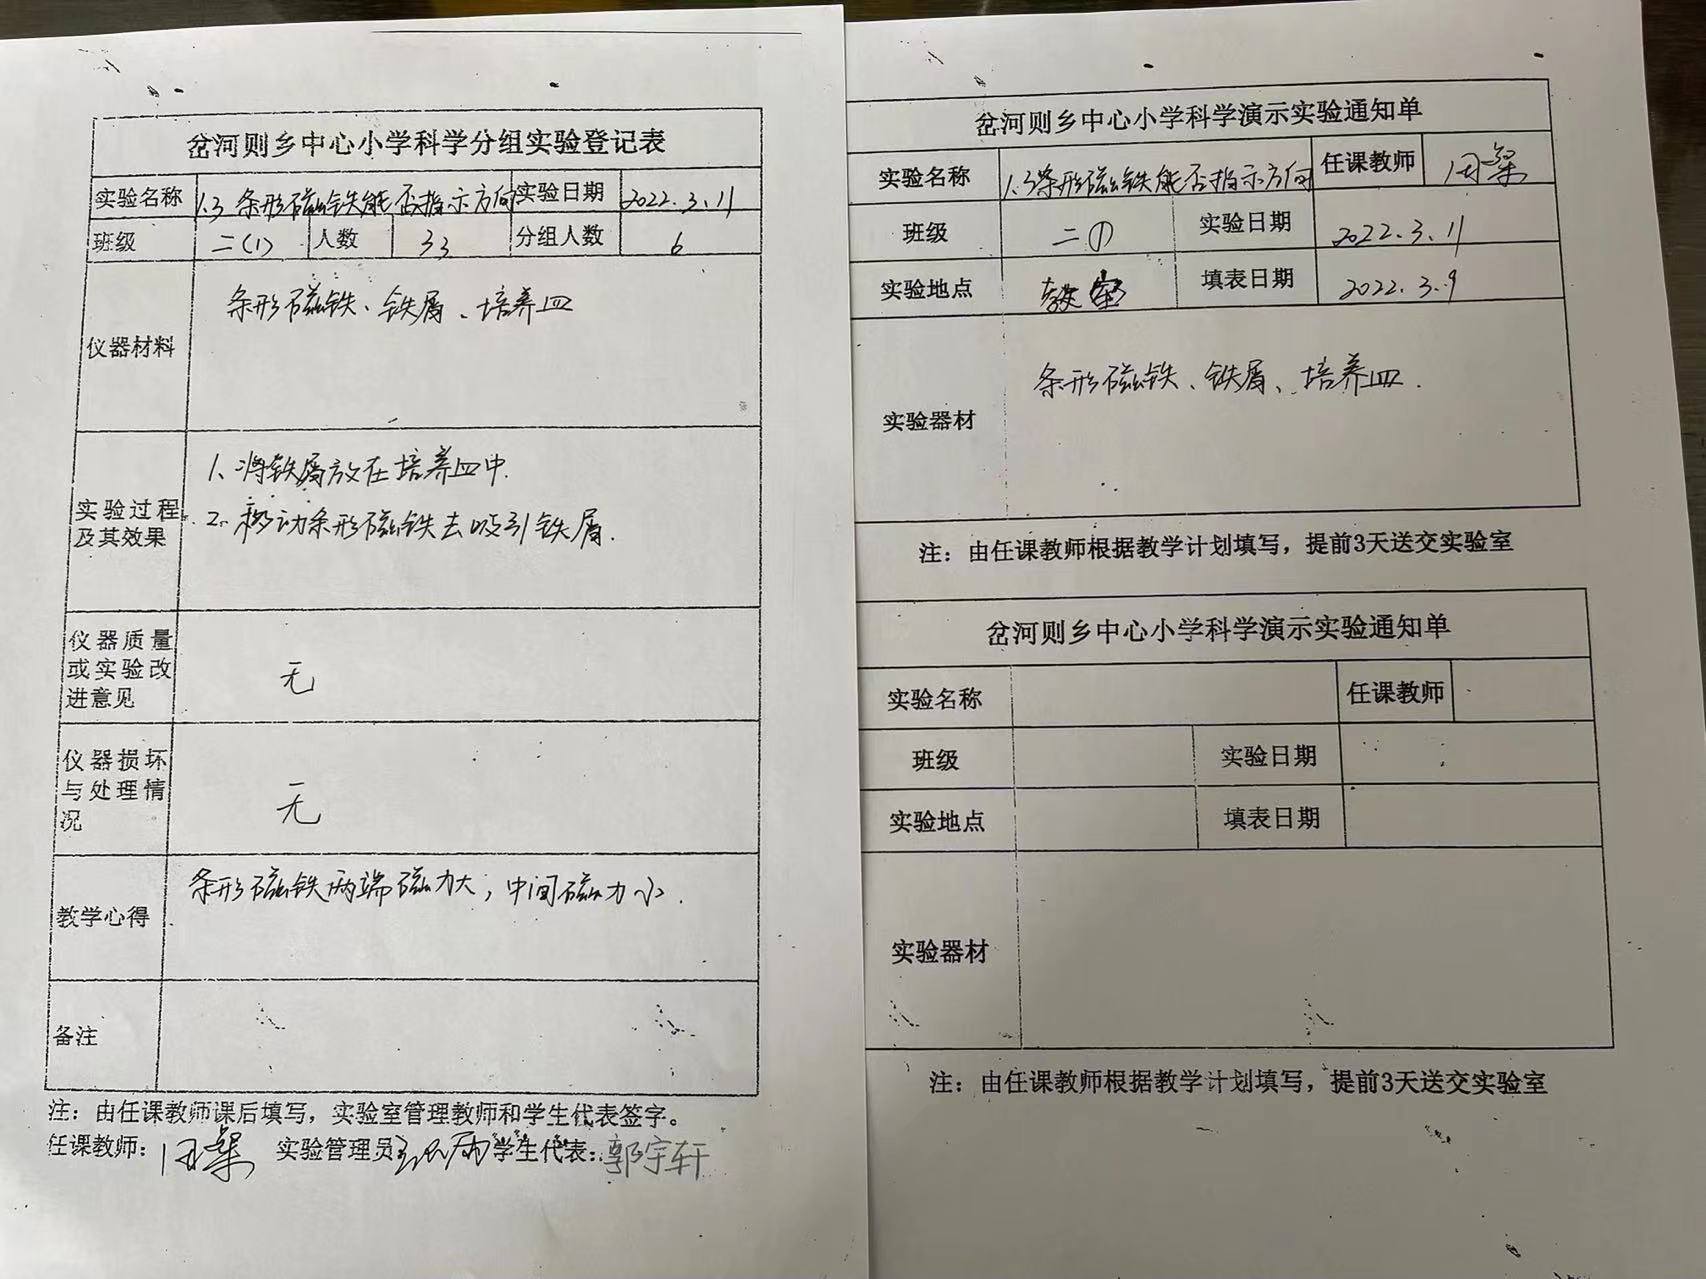 岔河则乡中心小学科学分组实验登记表
实验名称 1.3 条形磁铁能否指示方向 实验日期 2022.3.11
班级 二(1) 人数 33 分组人数 6
仪器材料 条形磁铁、铁屑、培养皿
实验过程及其效果
1、将铁屑放在培养皿中.
2、移动条形磁铁去吸引铁屑.
仪器质量或实验改进意见 无
仪器损坏与处理情况 无
教学心得 条形磁铁两端磁力大，中间磁力小.
备注
注：由任课教师课后填写，实验室管理教师和学生代表签字。
任课教师：周粲 实验管理员 学生代表：郭宇轩
岔河则乡中心小学科学演示实验通知单
实验名称 1.3条形磁铁能否指示方向 任课教师 周粲
班级 二① 实验日期 2022.3.11
实验地点 教室 填表日期 2022.3.9
实验器材 条形磁铁、铁屑、培养皿.
注：由任课教师根据教学计划填写，提前3天送交实验室
岔河则乡中心小学科学演示实验通知单
实验名称 任课教师
班级 实验日期
实验地点 填表日期
实验器材
注：由任课教师根据教学计划填写，提前3天送交实验室